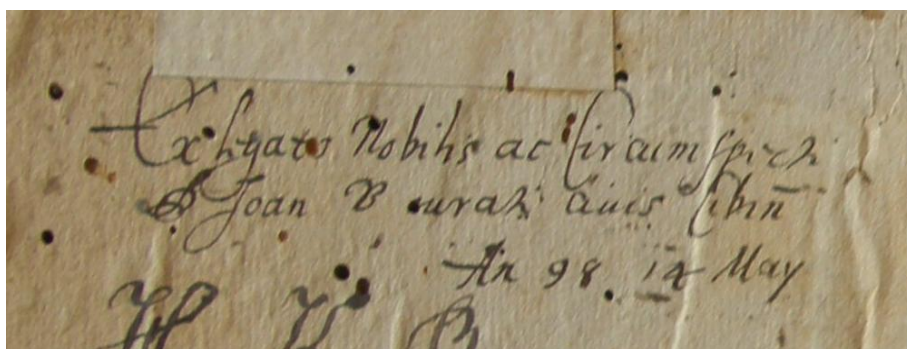 Ex legato Nobilis ac Circumspecti
D Joan B curati Civis Cibin
An 98 14 May